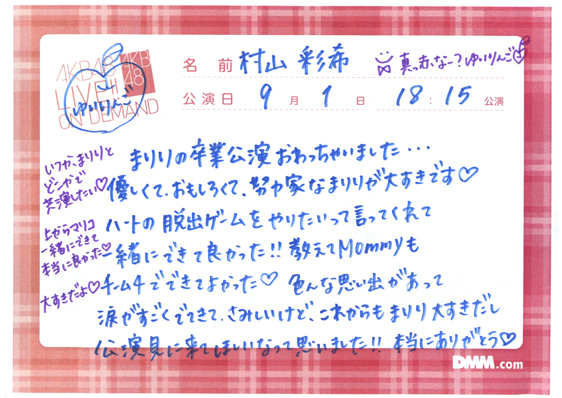 AKB48
LIVE!!
ON DEMAND
AKB
48
ゆいりんご
名 前 村山 彩希
真っ赤なー?ゆいりんご
公演日 9 月 1 日 18:15 公演
まりりの卒業公演おわっちゃいました・・・
優しくて、おもしろくて、努力家なまりりが大すきです♡
ハートの脱出ゲームをやりたいって言ってくれて
一緒にできて良かった!! 教えてMommyも
チーム4でできてよかった♡ 色んな思い出があって
涙がすごくでてきて、さみしいけど、これからもまりり大すきだし
公演見に来てほしいなって思いました!! 本当にありがとう♡
いつか、まりりと
どこかで
共演したい♡
上からマリコ
一緒にできて
本当に良かった♡
大すきだよ♡
DMM.com